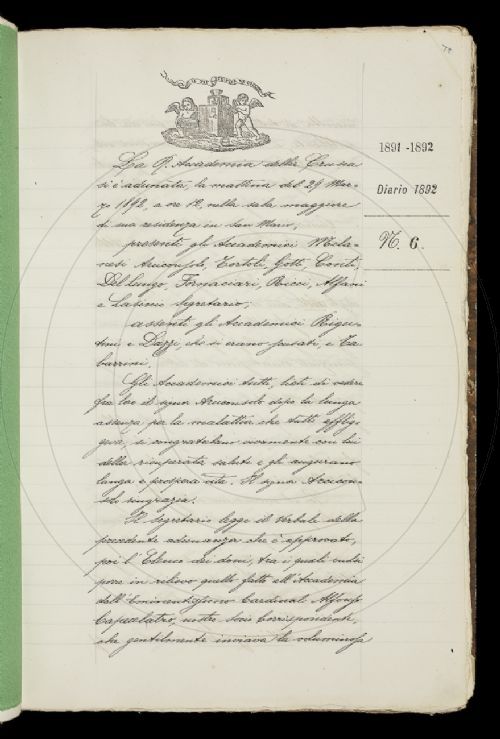 1891-1892
Diario 1892
N. 6.
La R. Accademia della Crusca
si è adunata, la mattina del 29 Mar-
zo 1892, a ore 12, nella sala maggiore
di sua residenza in San Marco,
presenti gli Accademici Mila-
nesi Arciconsolo, Tortoli, Gotti, Conti,
Del Lungo, Fornaciari, Ricci, Alfani
e Segretario;
assenti gli Accademici Rigu-
tini e Dazzi, che si erano scusati, e Ta-
barrini.
Gli Accademici tutti, lieti di vedere
fra loro il signor Arciconsolo dopo la lunga
assenza per la malattia che tutti afflig-
geva, si congratulano vivamente con lui
della ricuperata salute e gli augurano
lunga e prospera vita. Il signor Arcicon-
solo ringrazia.
Il Segretario legge il Verbale della
precedente adunanza che è approvato,
poi l'Elenco dei doni, tra i quali
pone in rilievo quello fatto all'Accademia
dall'Eminentissimo Cardinale Alfonso
Capecelatro, nostro Socio corrispondente,
che gentilmente inviava la voluminosa